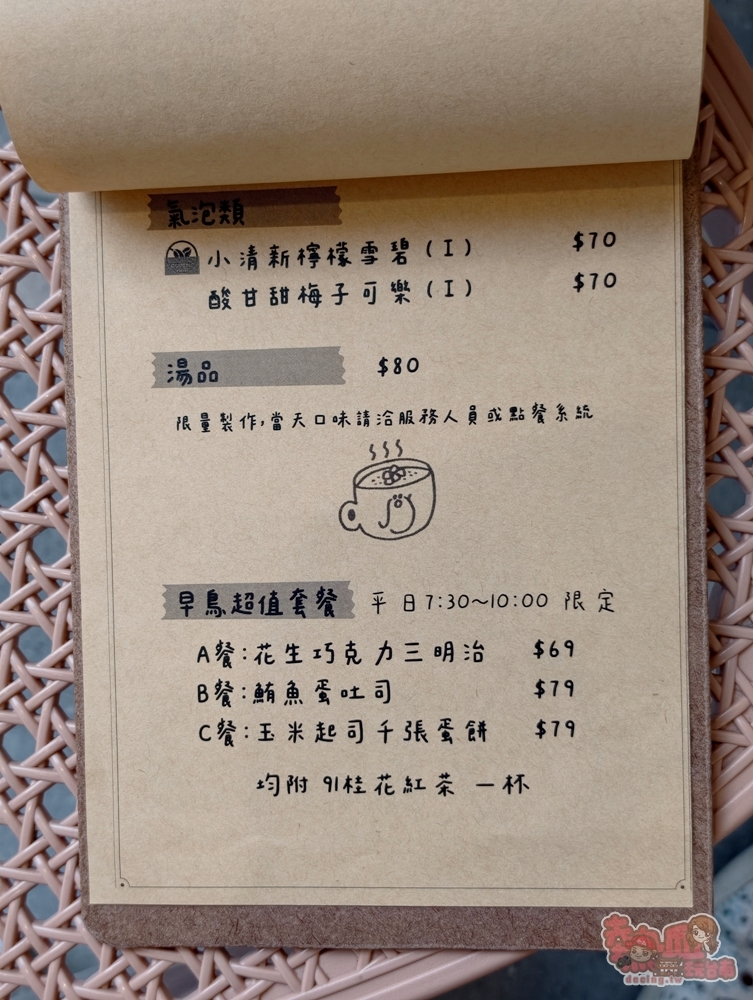 氣泡類
小清新檸檬雪碧(I) $70
酸甘甜梅子可樂(I) $70
湯品 $80
限量製作,當天口味請洽服務人員或點餐系統
早鳥超值套餐 平日7:30~10:00 限定
A餐:花生巧克力三明治 $69
B餐:鮪魚蛋吐司 $79
C餐:玉米起司千張蛋餅 $79
均附 91桂花紅茶 一杯
玩台南
dealing.tw